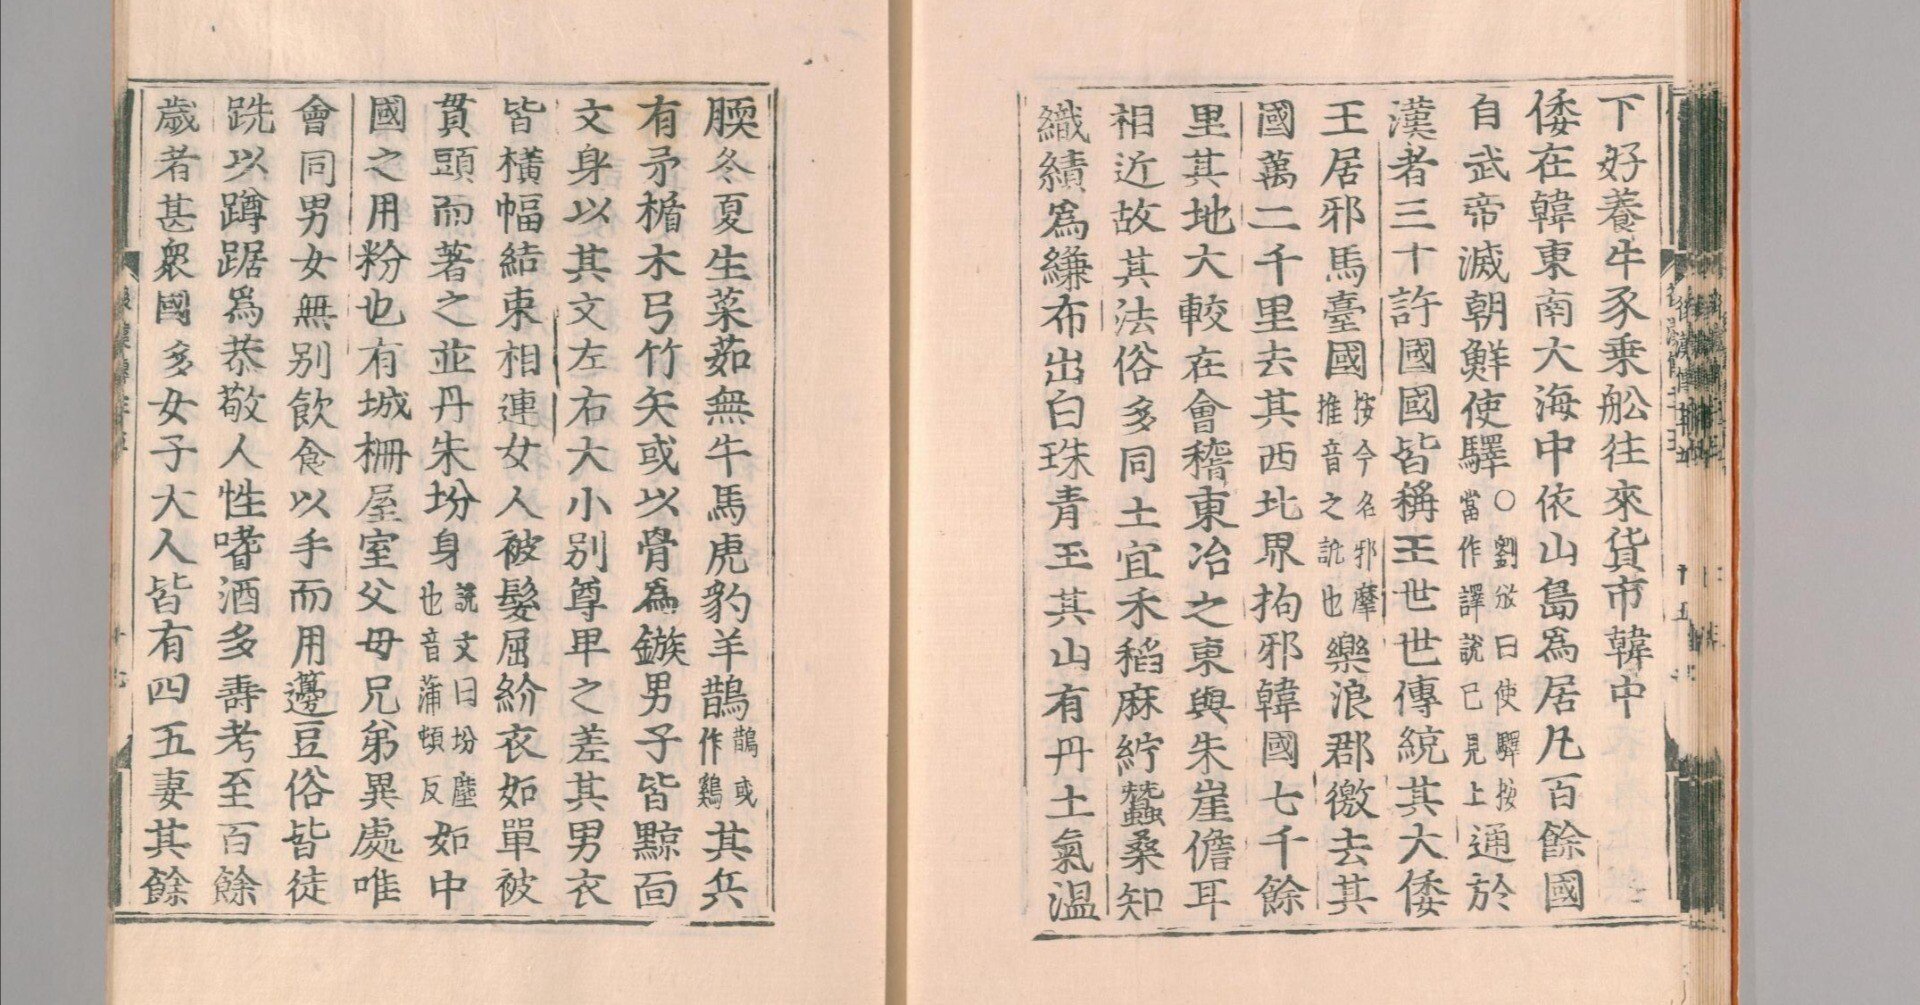 下好養牛豕乗船往來貨市韓中
倭在韓東南大海中依山島爲居凡百餘國
自武帝滅朝鮮使驛○劉攽曰使驛按當作譯說已見上通於
漢者三十許國國皆稱王世世傳統其大倭
王居邪馬臺國按今名邪摩推音之訛也樂浪郡徼去其
國萬二千里去其西北界拘邪韓國七千餘
里其地大較在會稽東冶之東與朱崖儋耳
相近故其法俗多同土宜禾稻麻紵蠶桑知
織績爲縑布出白珠青玉其山有丹土氣温
腝冬夏生菜茹無牛馬虎豹羊鵲鵲或作鷄其兵
有矛楯木弓竹矢或以骨爲鏃男子皆黥面
文身以其文左右大小別尊卑之差其男衣
皆橫幅結束相連女人被髮屈紒衣如單被
貫頭而著之並丹朱坋身說文曰坋塵也音蒲頓反如中
國之用粉也有城柵屋室父母兄弟異處唯
會同男女無別飲食以手而用籩豆俗皆徒
跣以蹲踞爲恭敬人性嗜酒多壽考至百餘
歲者甚衆國多女子大人皆有四五妻其餘